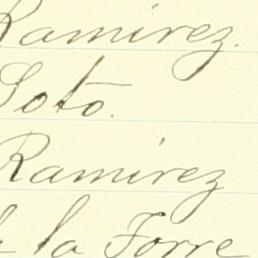 Ramirez.
Soto.
Ramirez
la Torre